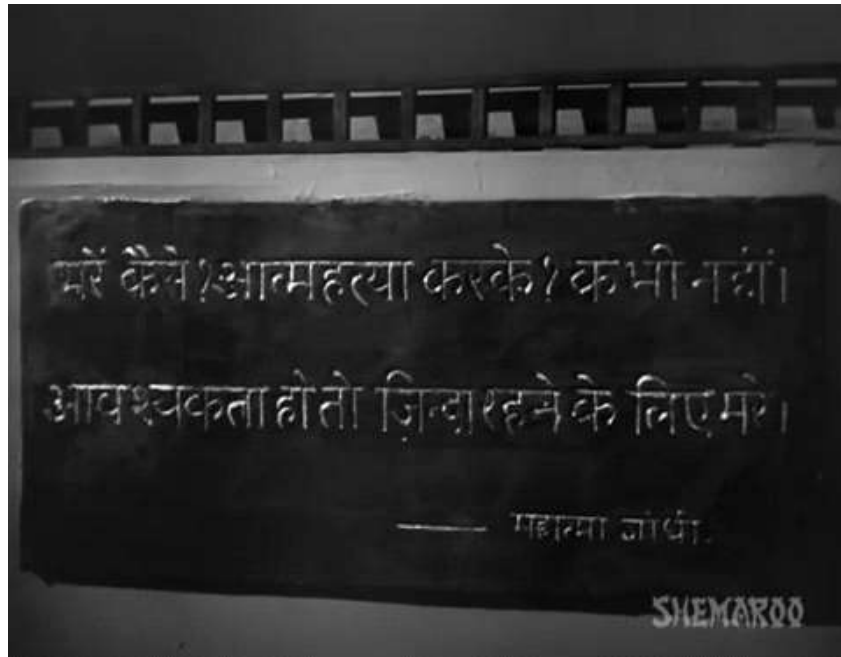 मरें कैसे? आत्महत्या करके? कभी नहीं।
आवश्यकता हो तो ज़िन्दा रहने के लिए मरे।
— महात्मा गांधी.
SHEMAROO